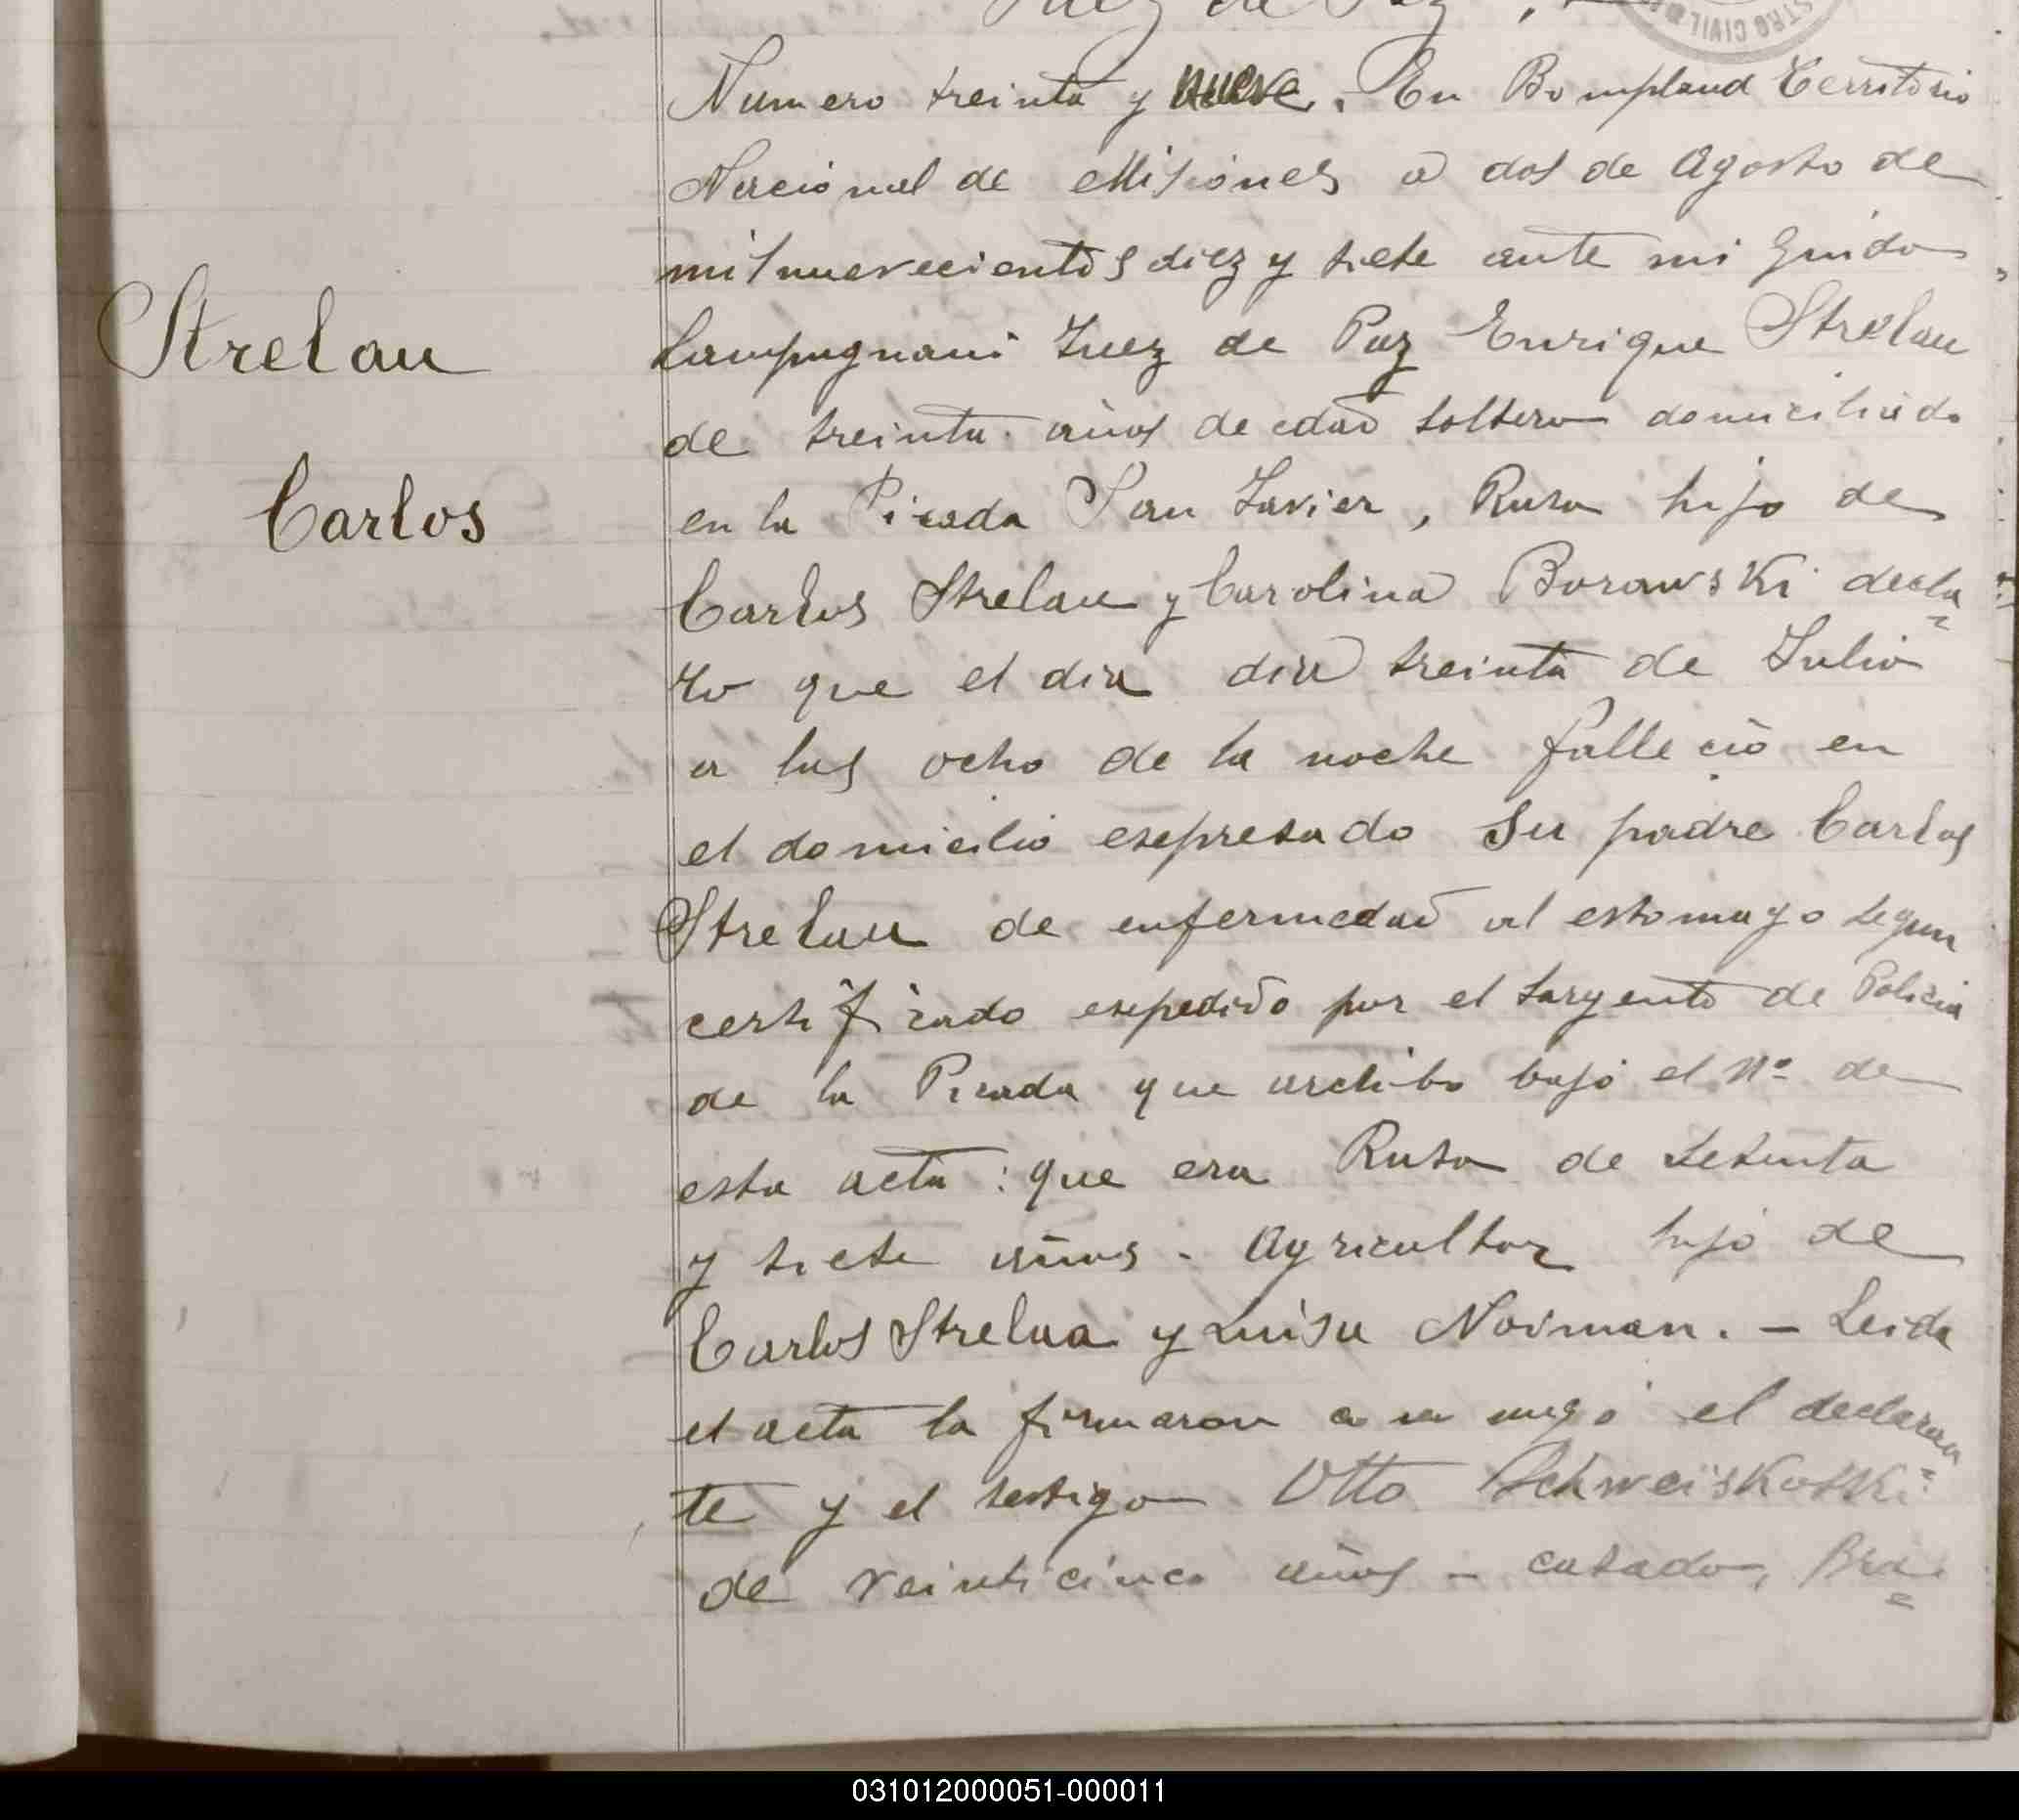 Juez de Paz
STRO CIVIL
Numero treinta y nueve. En Bompland Territorio
Nacional de Misiones a dos de Agosto de
mil nuevecientos diez y siete ante mi Guido
Campugnani Juez de Paz Enrique Strelau
de treinta años de edad soltero domiciliado
en la Picada San Javier, Ruso hijo de
Strelau
Carlos
Carlos Strelau y Carolina Borawski decla=
ro que el dia dia treinta de Julio
a las ocho de la noche falleció en
el domicilio esepresado su padre Carlos
Strelau de enfermedad al estomago segun
certificado esepedido por el sargento de Policia
de la Picada que archibo bajo el Nº de
esta acta: que era Ruso de setenta
y siete años. Agricultor hijo de
Carlos Strelua y Luisa Noiman. — Leida
el acta la firmaron a su rugo el declaran=
te y el testigo Otto Schweiskoski
de veinticinco años - casado, Bra=
031012000051-000011